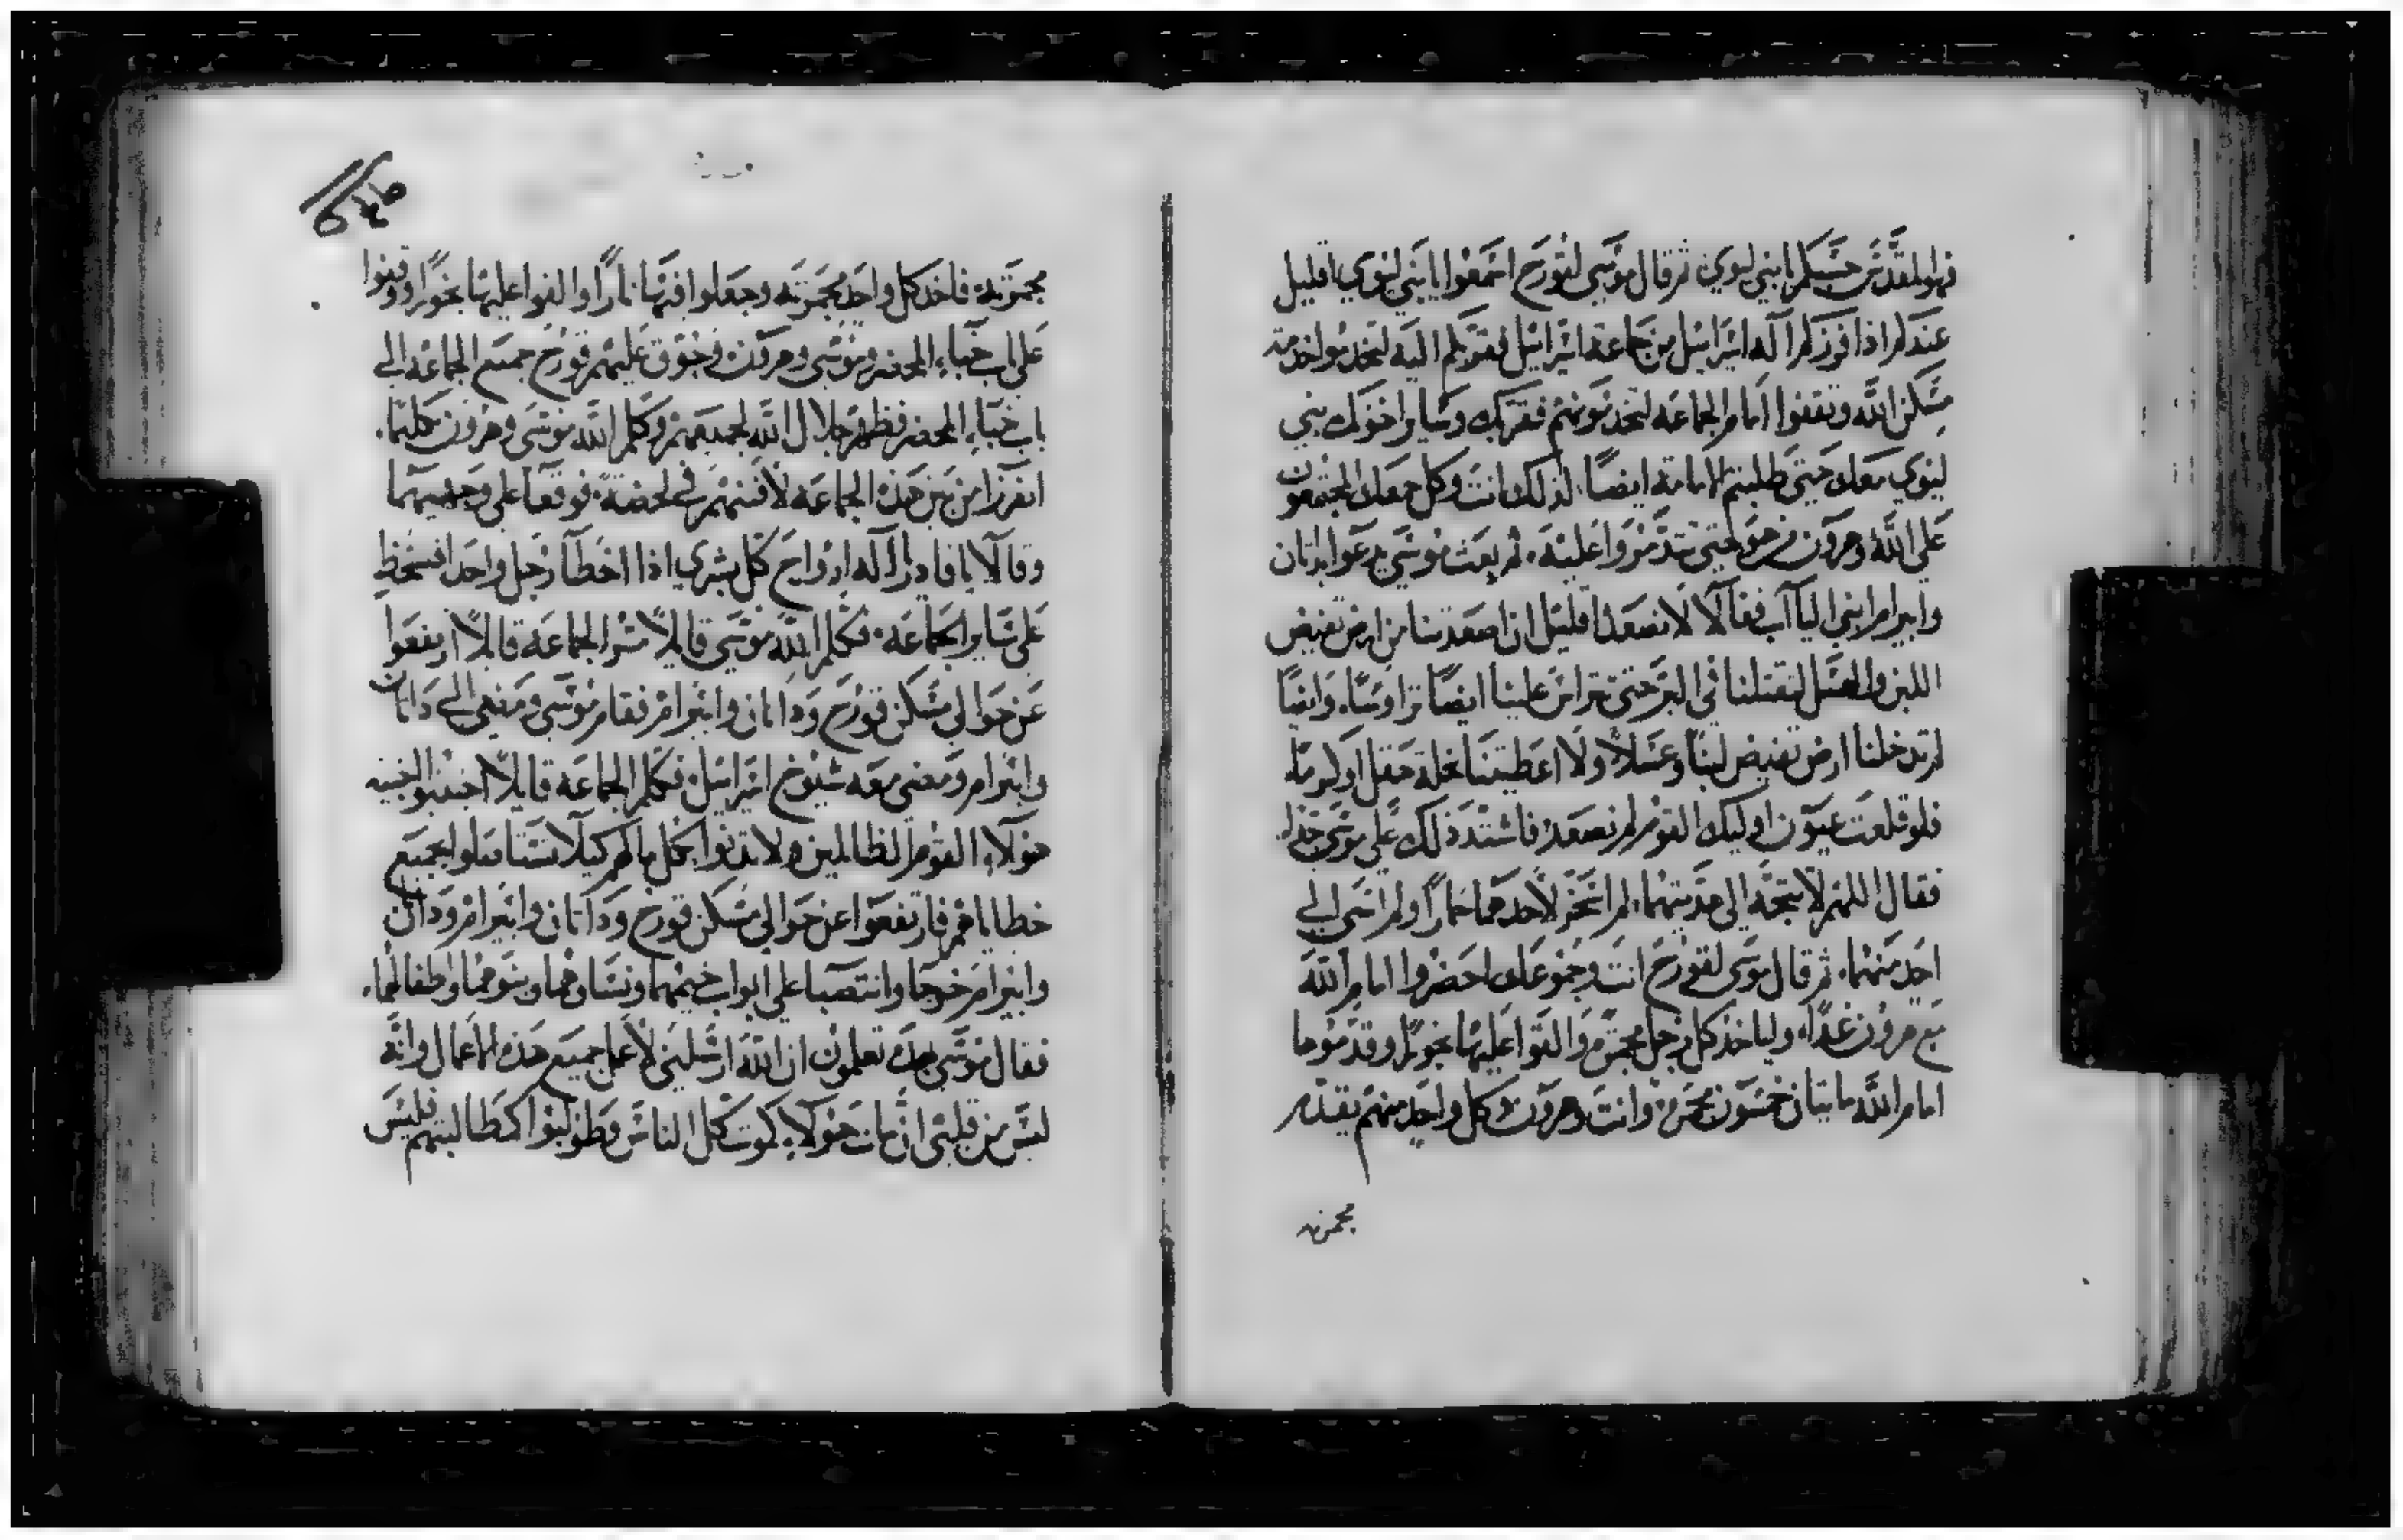 فهو المقدس حسبكم يا بني ليوي ثم قال موسى لقورح اسمعوا يا بني ليوي اقليل
عندكم اذا فرزكم اله اسرائيل من جماعة اسرائيل فقربكم اليه لتخدموا خدمة
مسكن الله وتقفوا امام الجماعه لتخدمونهم فقربك وساير اخوتك بني
ليوي معك حتي طلبتم الامامة ايضا. لذلك انت وكل جمعك المجتمعون
علي الله وهرون من هو حتي تتذمروا عليه. ثم بعث موسي يدعوا بداتان
وابيرام ابني الياآب فقالا لا نصعد اقليل ان اصعدتنا من ارض تفيض
اللبن والعسل لتقتلنا في البر حتي تتراس علينا ايضا تراوسا. وايضا
لم تدخلنا ارض تفيض لبنا وعسلا ولا اعطيتنا نحلة حقل او كرما.
فلو قلعت عيون اوليك القوم لم نصعد فاشتد ذلك علي موسى جدا.
فقال اللهم لا تتجه الى هديتهما. لم اسخر لاحدهما حمارا ولم اسى الي
احد منهما. ثم قال موسى لقورح انت وجموعك احضروا امام الله
مع هرون غدا. ولياخذ كل رجل مجمره والقوا عليها بخورا وقدموها
امام الله مايتان خمسون مجمره وانت وهرون وكل واحد منهم يقدم
مجمرته
مجمرته فاخد كل واحد مجمرته وجعلوا فيها نارا والقوا عليها بخورا ووقفوا
علي باب خباء المحضر وموسى وهرون وجوق عليهم قورح جميع الجماعه الي
باب خباء المحضر فظهر جلال الله لجميعهم وكلم الله موسى وهرون كليما.
انفرزا من بين هذه الجماعه لافنيهم في لحضة. فوقعا علي وجهيهما
وقالا يا قادرا اله ارواح كل بشري اذا اخطا رجل واحد افتسخط
علي ساير الجماعه. فكلم الله موسي قايلا مر الجماعة قايلا ارتفعوا
عن حوالي مسكن قورح وداتان وابيرام فقام موسى ومضي الي داتان
وابيرام ومضي معه شيوخ اسرائيل فكلم الجماعه قايلا اجنبوا اخبية
هولاء القوم الظالمين ولا تدنوا بكل ما لهم كيلا تستافلوا بجميع
خطاياهم فارتفعوا عن حوالي مسكن قورح وداتان وابيرام وداتان
وابيرام خرجا وانتصبا علي ابواب خيمهما ونساوهما وبنوهما واطفالهما.
فقال موسى بهذه تعلمون ان الله ارسلني لاعمل جميع هذه الاعمال وانه
ليس من قلبي ان مات هولاء كموت كل الناس وطولبوا كمطالبتهم فليس